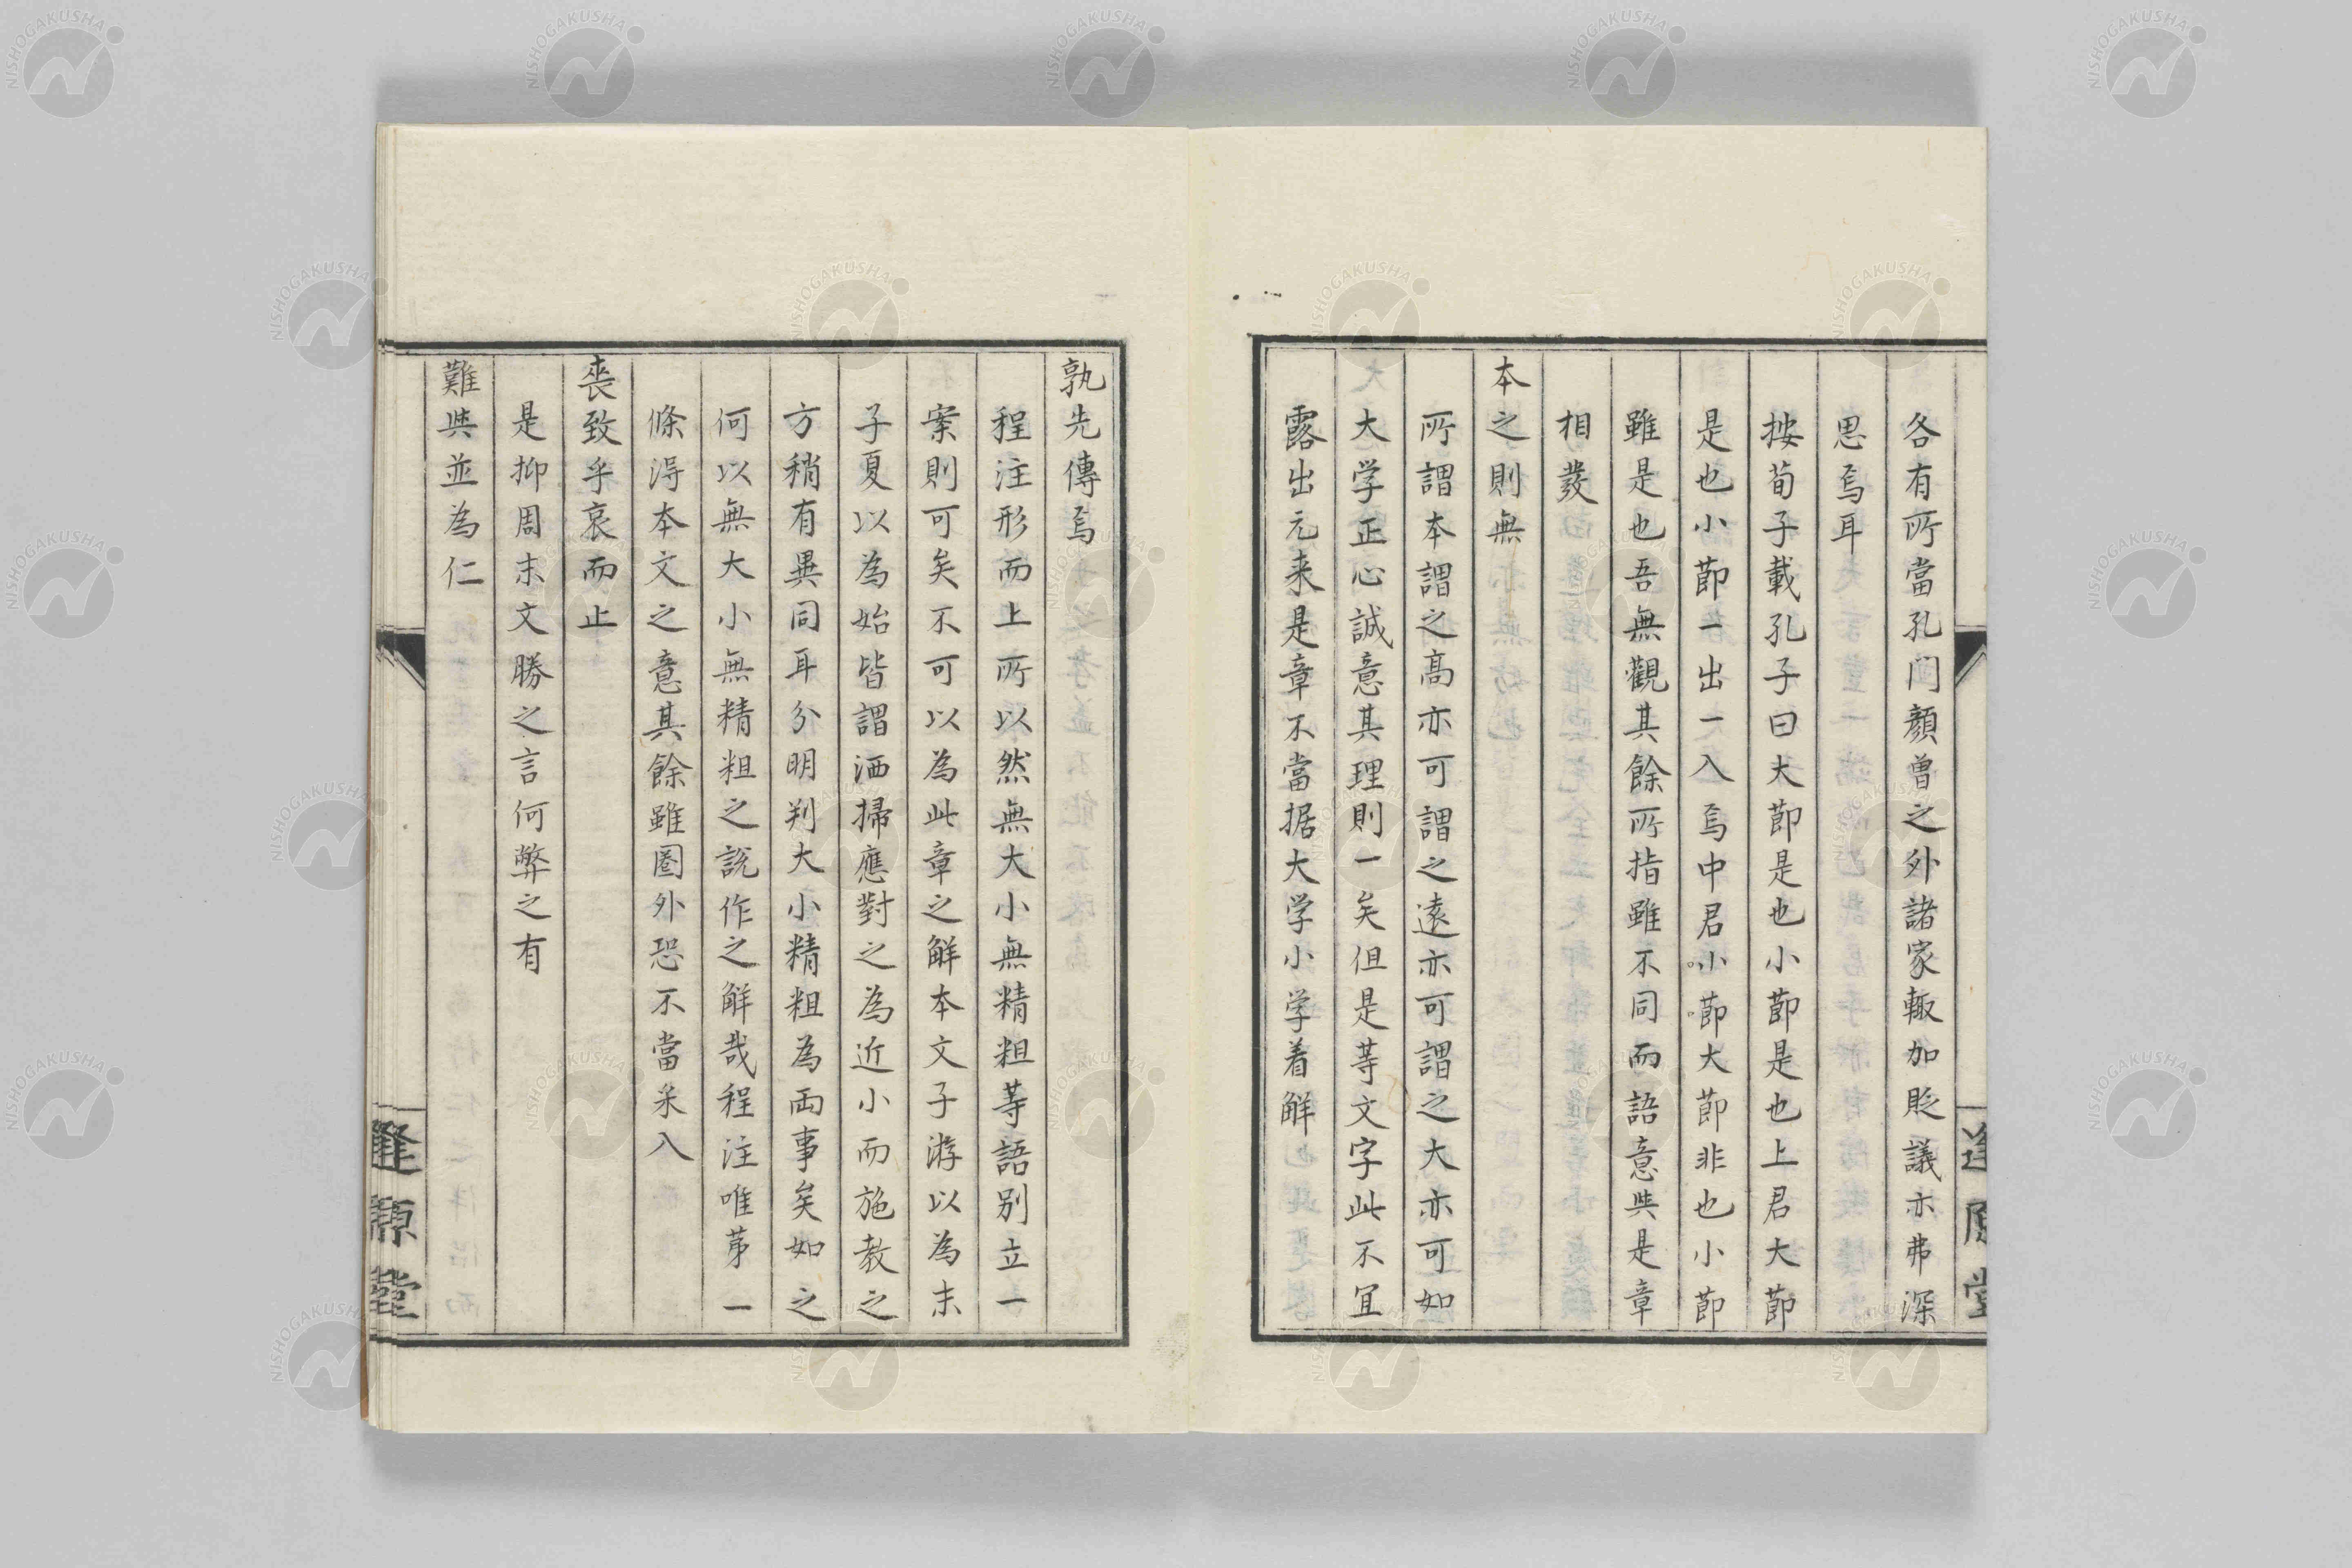 各有所當孔门顏曽之外諸家輙加貶議亦弗深
思焉耳
按荀子載孔子曰大莭是也小莭是也上君大莭
是也小莭一出一入焉中君小莭大莭非也小莭
雖是也吾無觀其餘所指雖不同而語意與是章
相發
本之則無
所謂本謂之高亦可謂之遠亦可謂之大亦可如
大学正心誠意其理則一矣但是等文字此不冝
露出元来是章不當据大学小学着解
孰先傳焉
程注形而上所以然無大小無精粗等語别立一
案則可矣不可以為此章之解本文子游以為末
子夏以為始皆謂洒掃應對之為近小而施教之
方稍有異同耳分明判大小精粗為両事矣如之
何以無大小無精粗之説作之解哉程注唯苐一
條淂本文之意其餘雖圏外恐不當采入
喪致乎哀而止
是抑周末文勝之言何弊之有
難與並為仁
逢原堂
NISHOGAKUSHA